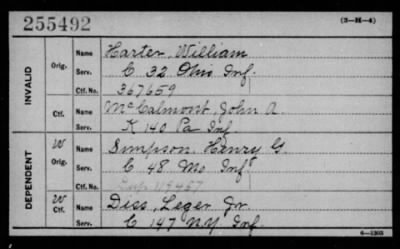 255492
(3-M-4)
INVALID
Orig.
Name Harter, William
Serv. C 32 Ohio Inf.
Ctf. No. 367659
Ctf.
Name McCalmont, John A.
Serv. K 140 Pa Inf
DEPENDENT
W Orig.
Name Simpson, Henry G.
Serv. C 48 Mo Inf
Ctf. No.
W Ctf.
Name Diss, Leger Jr.
Serv. C 147 N.Y. Inf.
6-1303